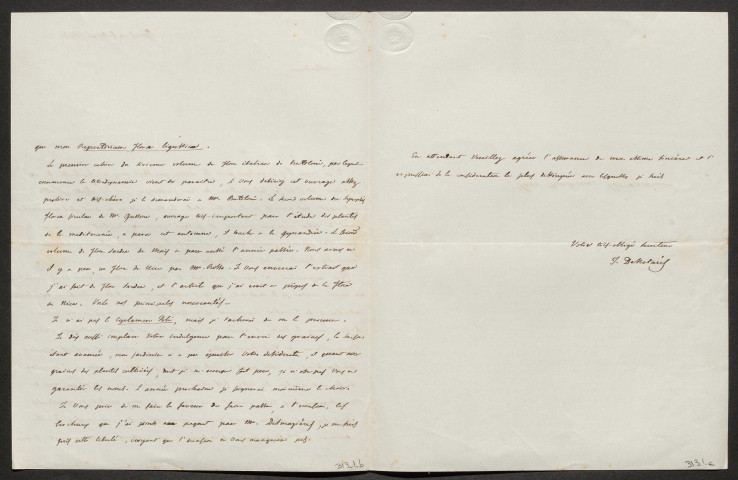 que mon Repertorium Florae Ligusticae.
Le premier cahier du sixieme volume du Flora italica de Bertoloni, par lequel
commence la Didynamie vient de paraitre, si vous desirez cet ouvrage assez
precieux et tres-cher je le demanderai a Mr Bertoloni. Le second volume du Synopsis
Florae siculae de Mr Gussone, ouvrage tres-important pour l'étude des plantes
de la mediterranée, a paru cet automne, il touche a la Gynandrie. Le second
volume de Flora Sardoa de Moris a paru aussi l'année passée. Nous avons eu
il y a peu, un Flore de Nice par Mr Risso. Je vous enverrai l'extrait que
j'ai fait de Flora Sardoa, et l'article que j'ai ecrit a propos de la Flore
de Nice. Voila nos principales nouveautés.
Je n'ai pas le Cyclamen Poli, mais je tacherai de me le procurer.
Je dois aussi implorer votre indulgence pour l'envoi des graines, la saison
etant avancée, mon jardinier n'a pu ajouter votre desiderata, et quant aux
graines des plantes cultivées, dont je me mefie fort peu, je n'ose pas vous en
garantir les noms. L'année prochaine je soignerai moi même le choix.
Je vous prie de me faire la faveur de faire passer, a l'occasion, les
brochures que j'ai joint au paquet pour Mr. Desmazières, je me suis
pris cette liberté, croyant que l'occasion ne vous manquera pas.
En attendant veuillez agréer l'assurance de mon estime sincère et l'
expression de la consideration la plus distinguée avec lesquelles je suis
Votre très obligé serviteur
J. DeNotaris
313.1.b
313.1.c